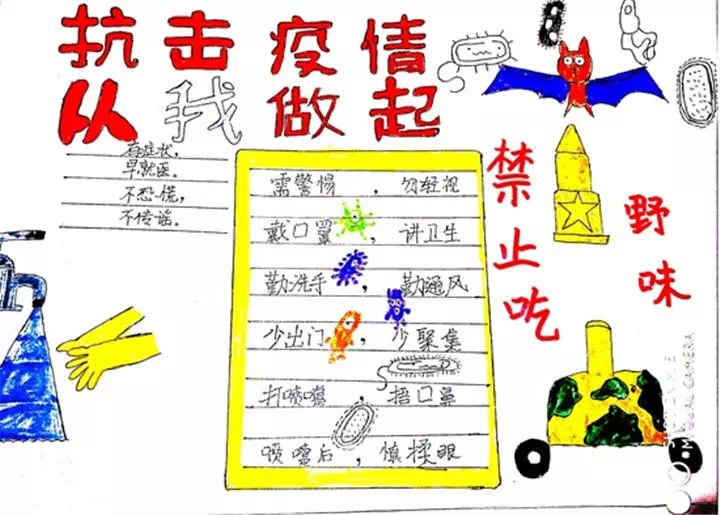 抗击疫情
从我做起
有症状，
早就医。
不恐慌，
不传谣。
需警惕，勿轻视
戴口罩，讲卫生
勤洗手，勤通风
少出门，少聚集
打喷嚏，捂口鼻
喷嚏后，慎揉眼
禁止吃
野味